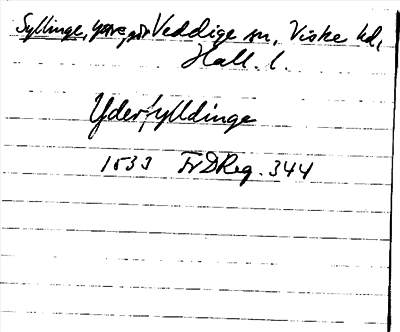 Syllinge, yttre, Veddige sn, Viske hd,
Hall. l.
Ydersylldinge
1533 FrDReg. 344